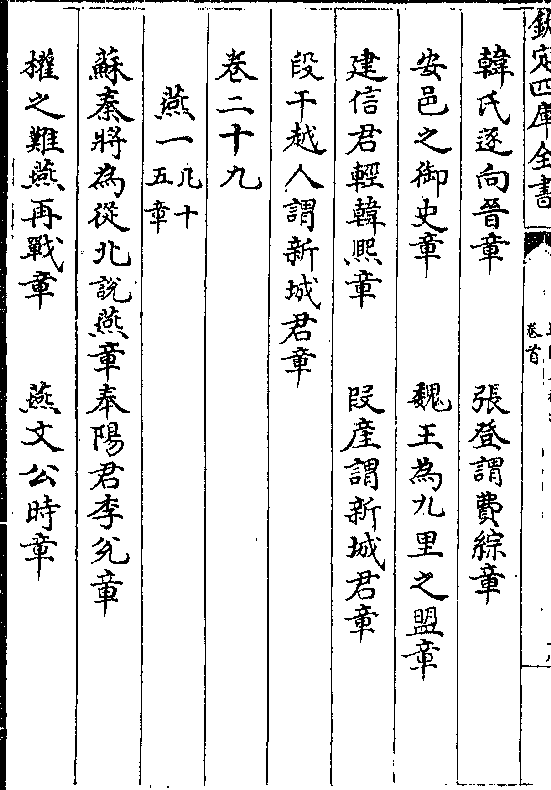 欽定四庫全書
卷首
韓氏逐向晉章　張登謂費綜章
安邑之御史章　魏王為九里之盟章
建信君輕韓熈章　段產謂新城君章
段干越人謂新城君章
卷二十九
燕一凡十五章
蘇秦將為從北說燕章奉陽君李兊章
權之難燕再戰章　燕文公時章